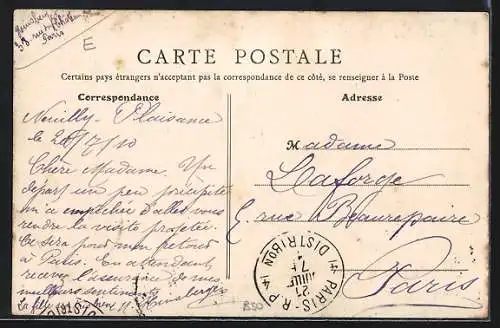 38 rue
Paris
E
CARTE POSTALE
Certains pays étrangers n'acceptant pas la correspondance de ce côté, se renseigner à la Poste
Correspondance
Adresse
Neuilly-Plaisance
le 20/7/10
Chère Madame. Un
départ un peu précipité
m'a empêchée d'aller vous
rendre la visite projetée.
Ce sera pour mon retour
à Paris. En attendant
recevez l'assurance de mes
meilleurs sentiments
Madame
Laforge
8, rue Beaurepaire
Paris
PARIS - R.P
DISTRIBON
21